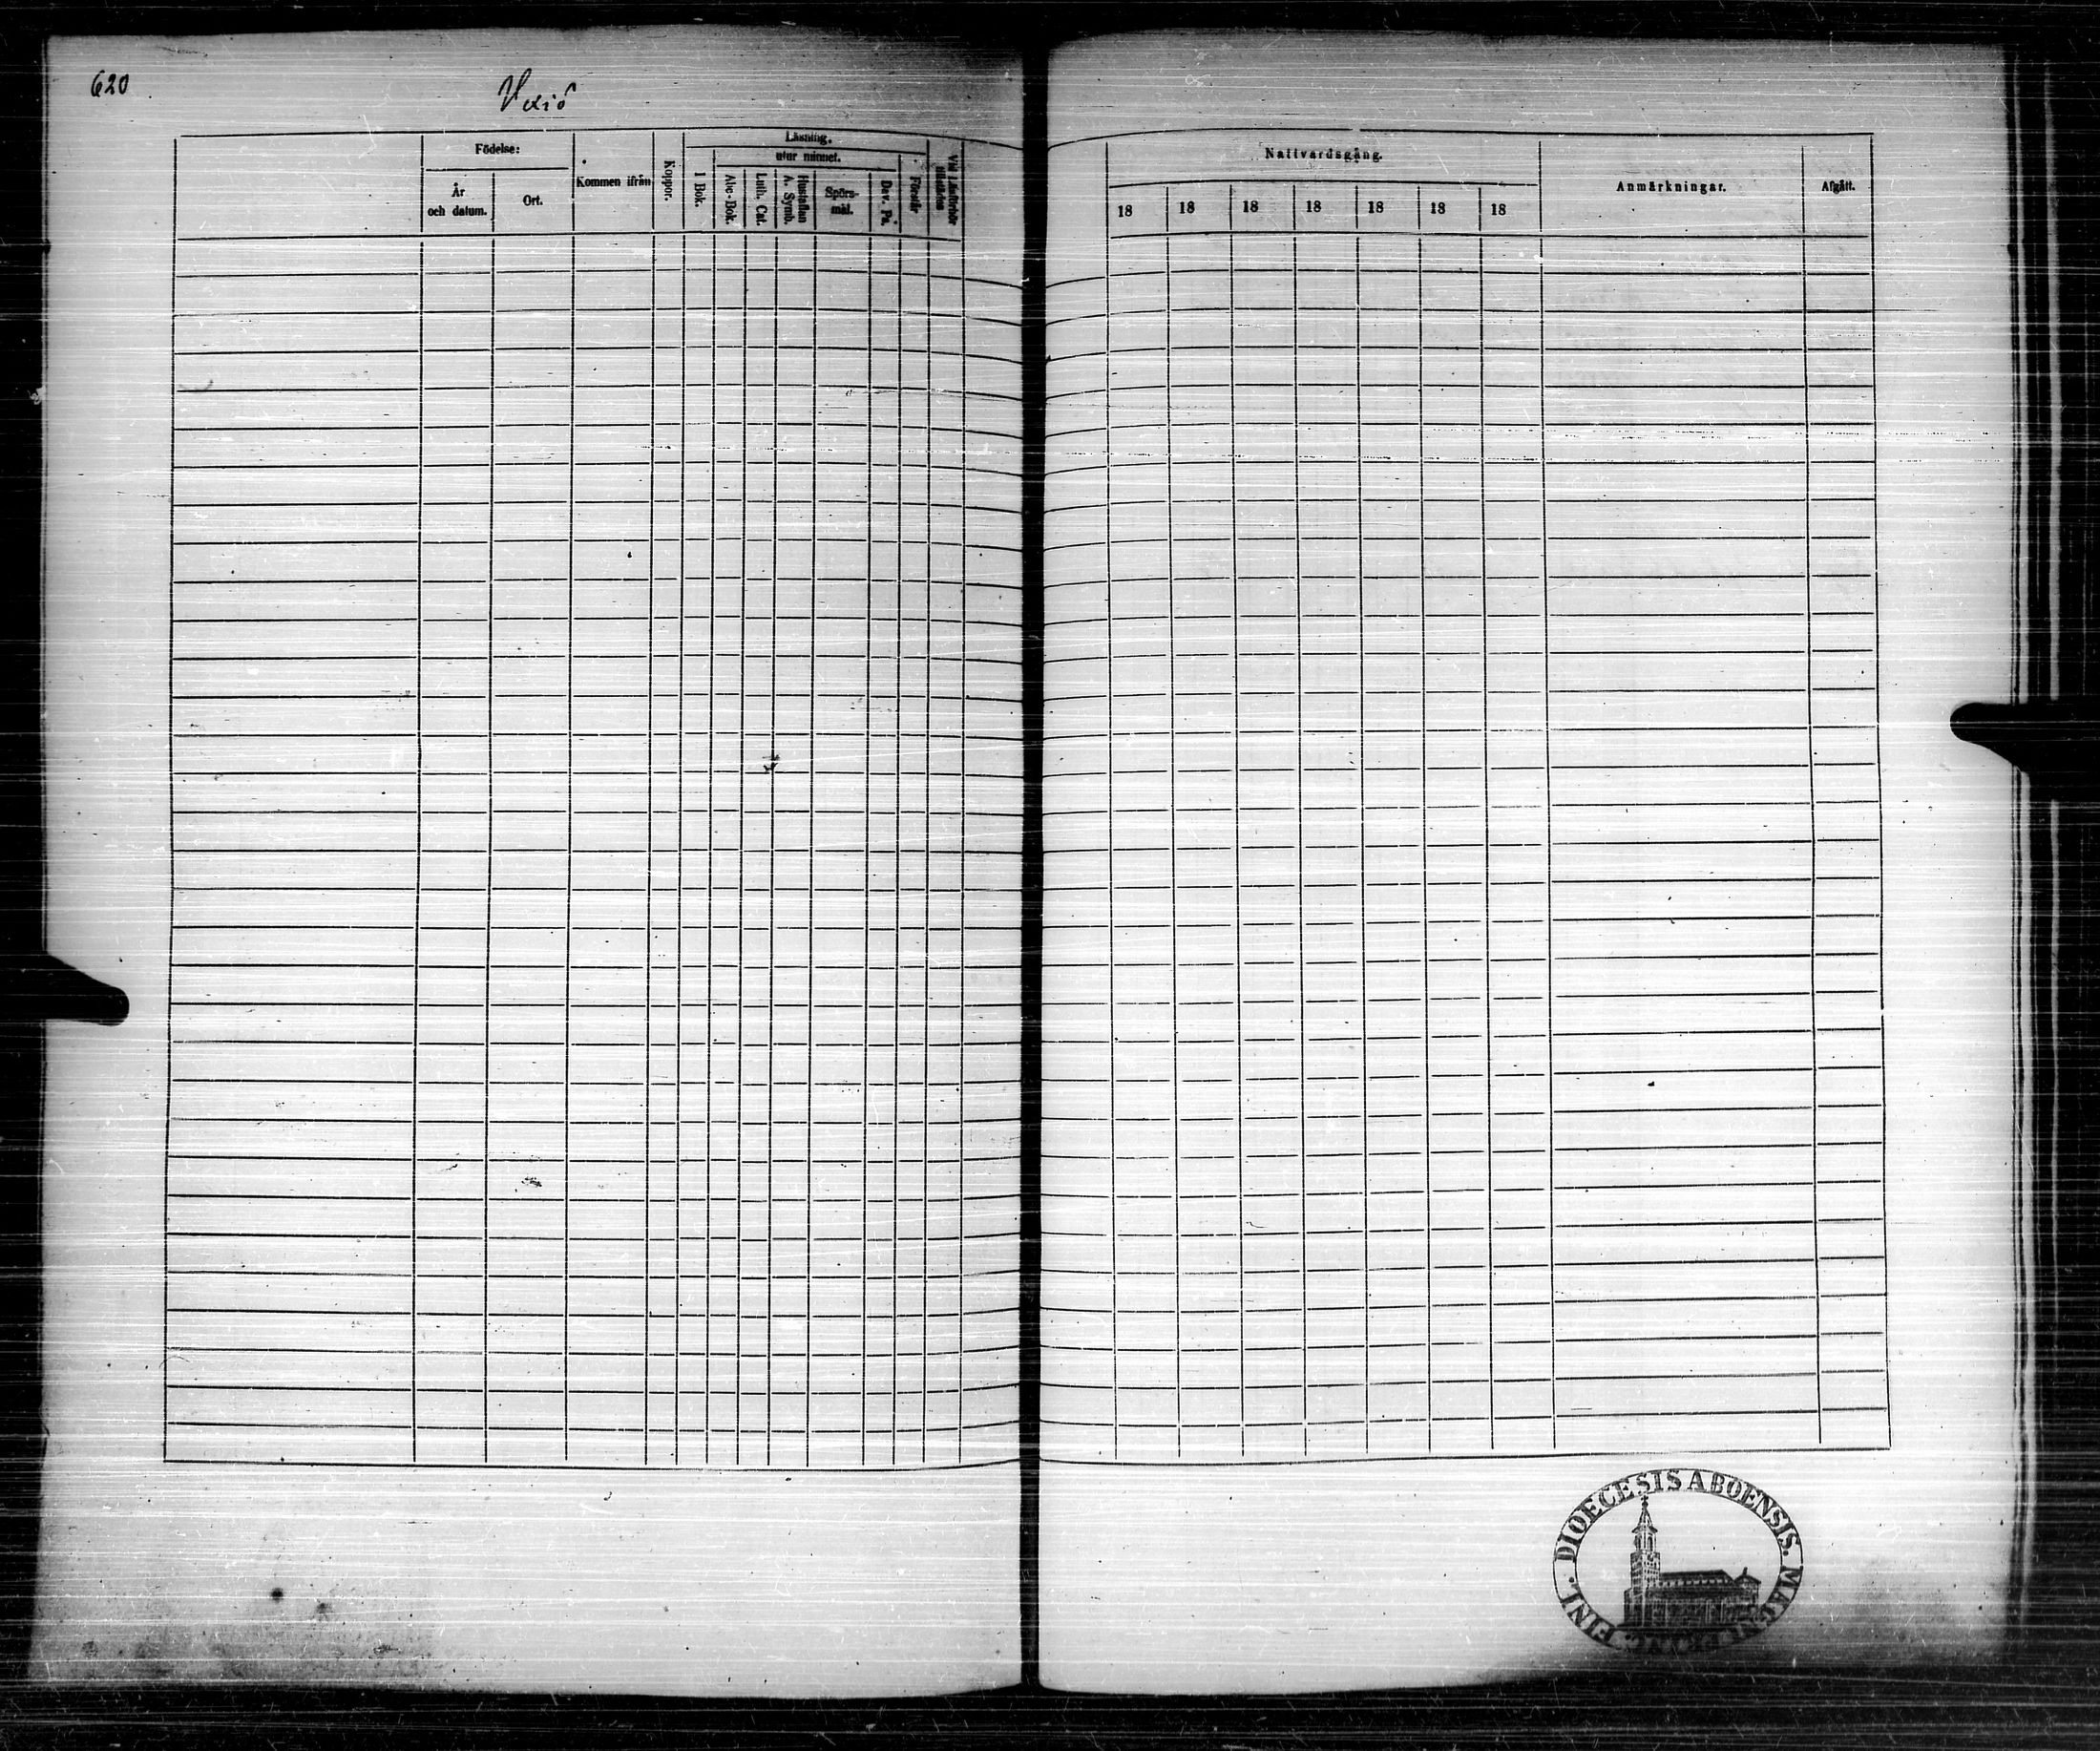 620
Vexiö
Födelse:
År
och datum.
Ort.
Kommen ifrån
Koppor.
Läsning.
utur minnet.
I Bok.
Abc-Bok.
Luth. Cat.
Hustaflan
A. Symb.
Spörs-
mål.
Dav. Ps.
Förstår
Vid Läsförhör
Nattvardsgång.
18 18 18 18 18 18 18
Anmärkningar.
Afgått.
DIOECESIS ABOENSIS. MAGNI PRINC. FINL.